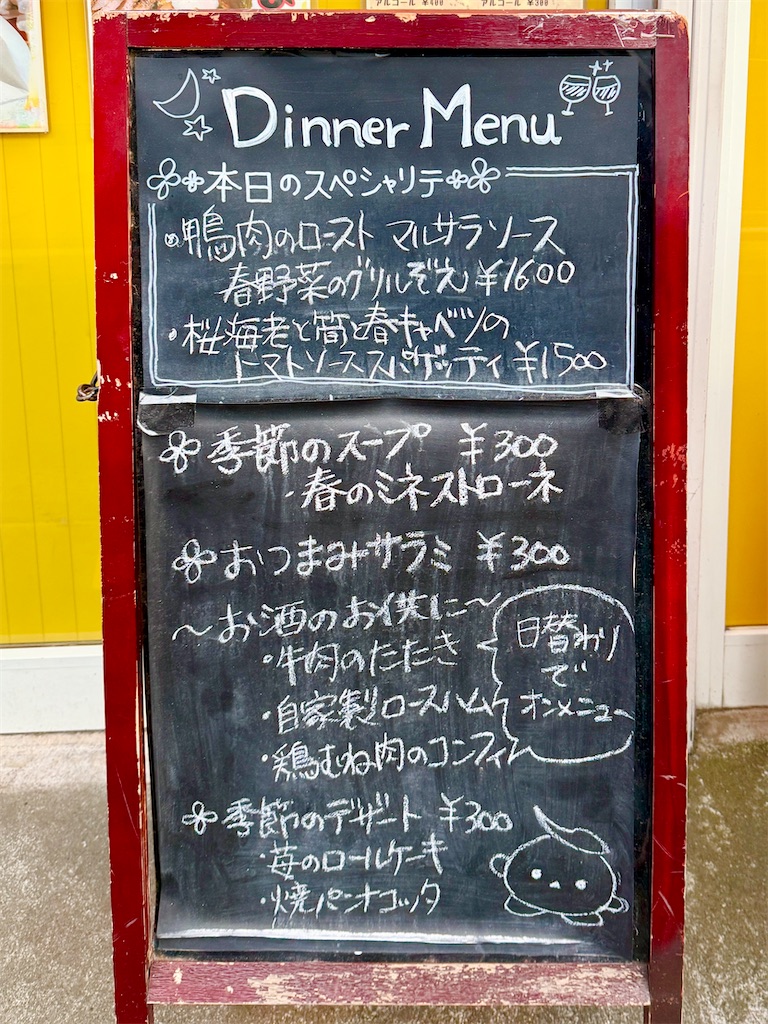 アルコール ¥400 アルコール ¥300
Dinner Menu
本日のスペシャリテ
・鴨肉のロースト マルサラソース
春野菜のグリルぞえ ¥1600
・桜海老と筍と春キャベツの
トマトソーススパゲッティ ¥1500
季節のスープ ¥300
・春のミネストローネ
おつまみサラミ ¥300
〜お酒のお供に〜
・牛肉のたたき
・自家製ロースハム
・鶏むね肉のコンフィ
日替わり
で
オンメニュー
季節のデザート ¥300
・苺のロールケーキ
・焼パンナコッタ